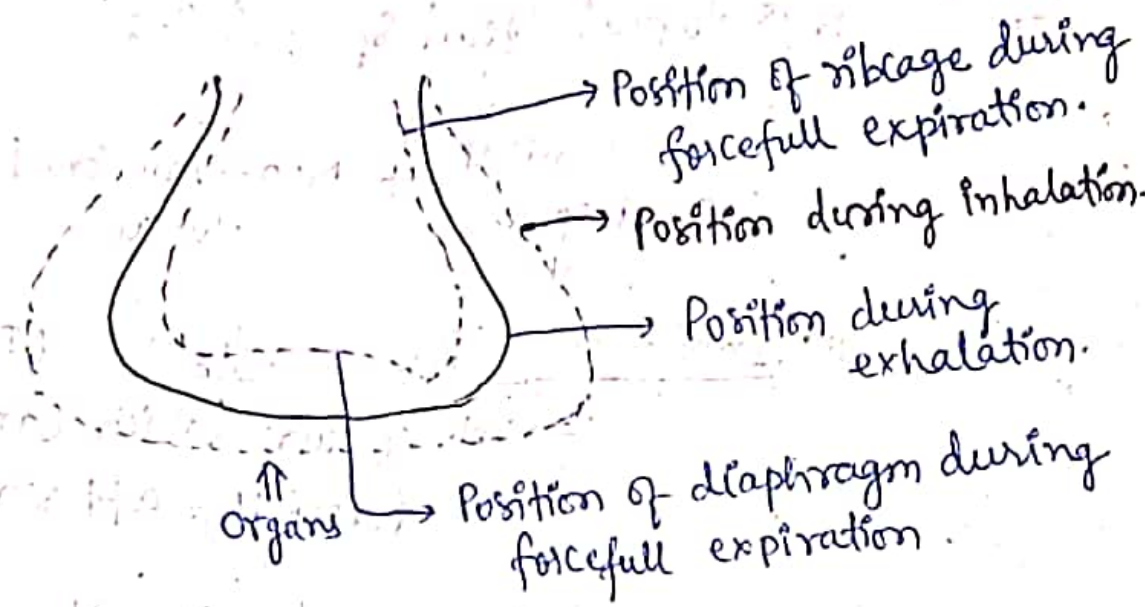 Position of ribcage during
forcefull expiration.
Position during inhalation.
Position during
exhalation.
Organs
Position of diaphragm during
forcefull expiration.